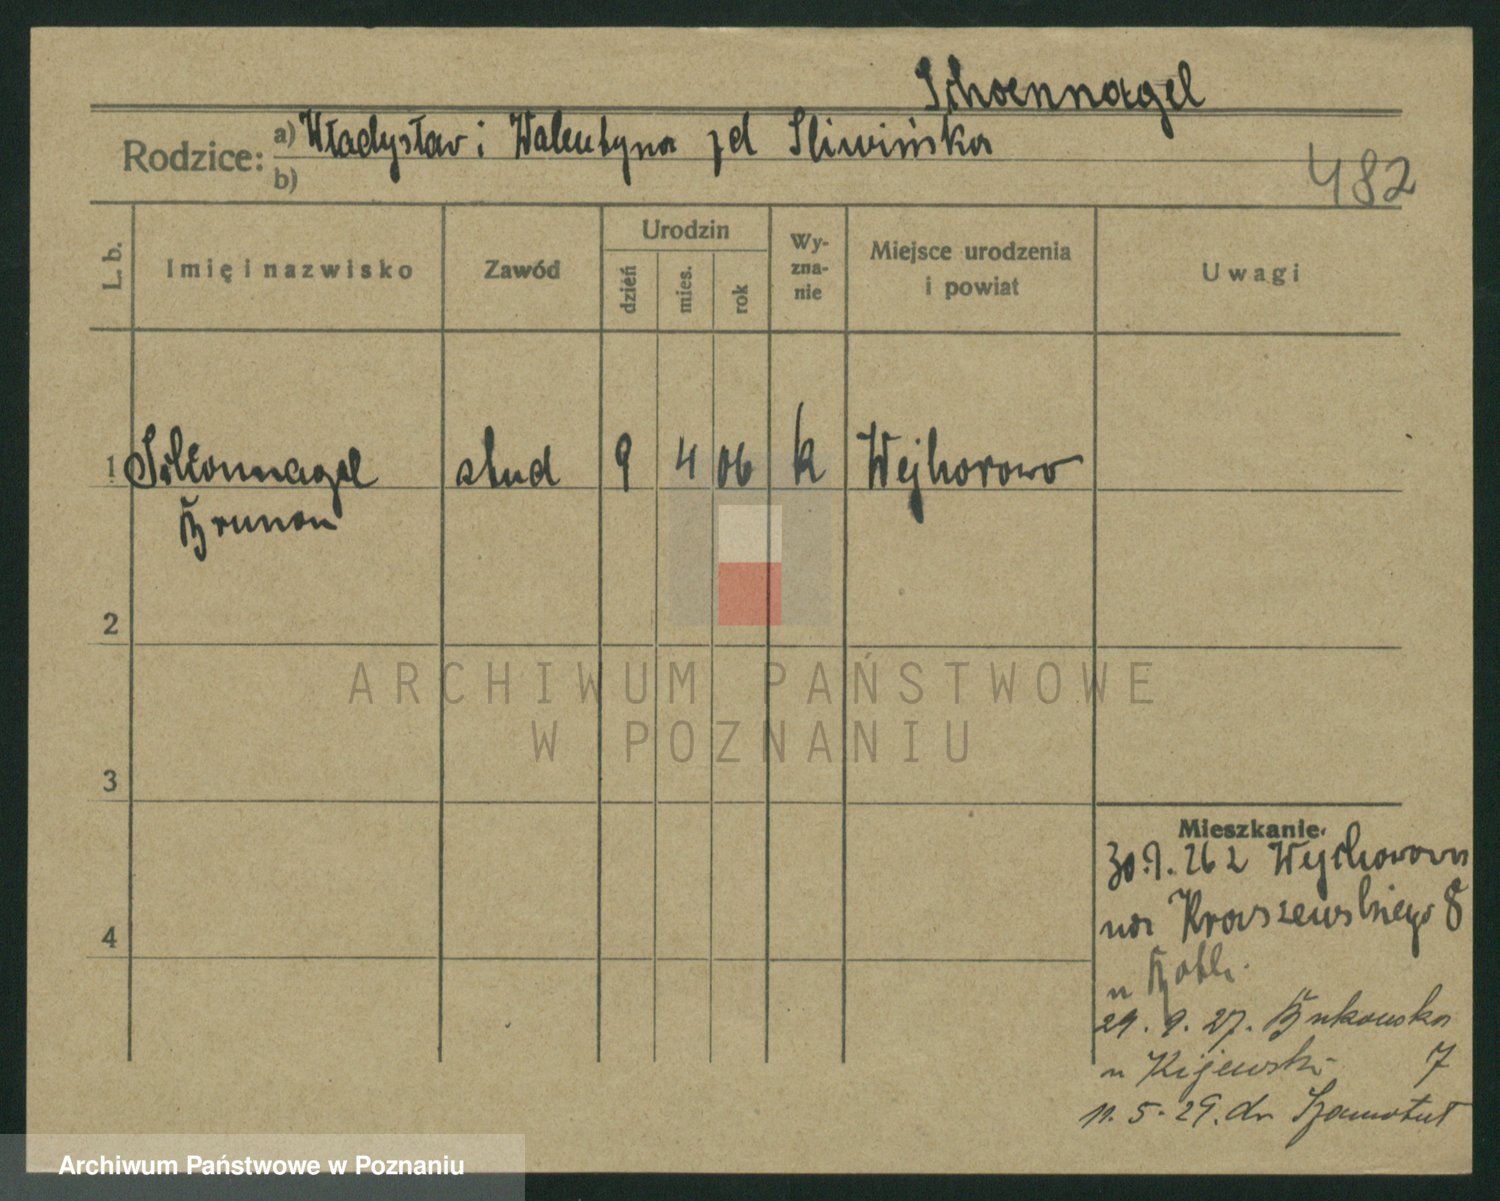 Schoennagel
Rodzice: a) Władysław i Walentyna zd Sliwińska
b)
482
L. b.
Imię i nazwisko
Zawód
Urodzin
dzień
mies.
rok
Wy-
zna-
nie
Miejsce urodzenia
i powiat
Uwagi
1 Schönnagel stud 9 4 06 k Wejherowo
Brunon
2
3
4
Mieszkanie
30.9.26 z Wejherowa
na Kraszewskiego 8
u
29.9.27. Bukowska
u Kijewski 7
11.5.29. do Szamotuł
ARCHIWUM PAŃSTWOWE
W POZNANIU
Archiwum Państwowe w Poznaniu